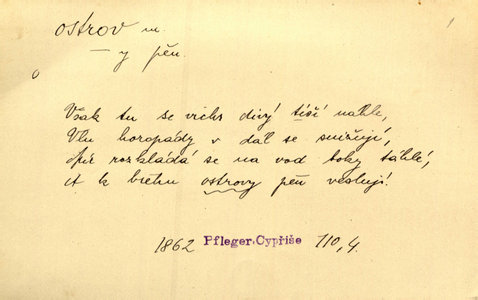 ostrov m.
— y pěn.
1
o
Však tu se vichr divý tiší náhle,
Vln horopády v dál se snižují,
Mír rozkládá se na vod toky táhlé,
A k břehu ostrovy pěn veslují.
1862 Pfleger, Cypřiše 110, 4.